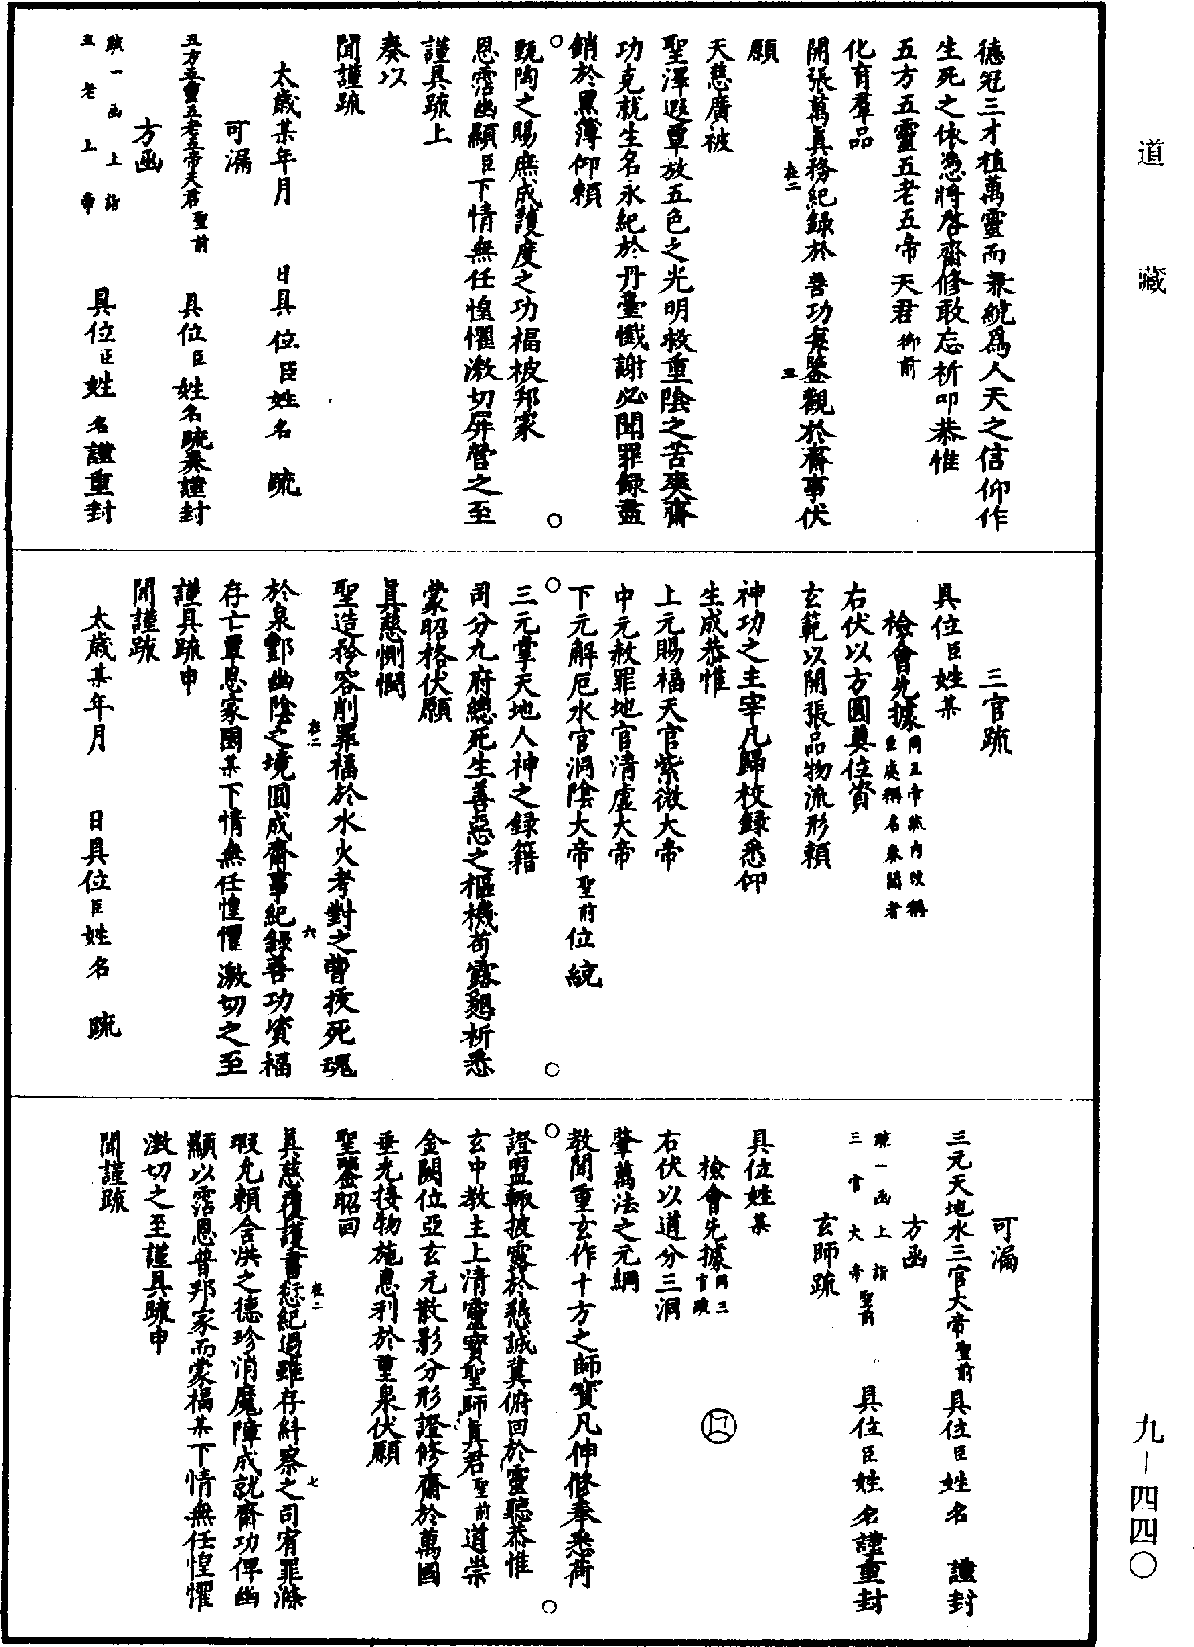 道藏
九—四四〇
德冠三才植萬靈而兼統爲人天之信仰作
生死之依憑將啓齋修敢忘祈叩恭惟
五方五靈五老五帝天君御前
化育羣品
開張萬眞務紀錄於善功每鑒觀於齋事伏
在二
五
願
天慈廣被
聖澤遐覃放五色之光明救重陰之苦爽齋
功克就生名永紀於丹臺懺謝必聞罪錄盡
銷於黑簿仰賴
甄陶之賜庶成護度之功福被邦家
恩霑幽顯臣下情無任惶懼激切屏營之至
謹具疏上
奏以
聞謹疏
太歲某年月 日具位臣姓名 疏
可漏
五方五靈五老五帝天君聖前 具位臣姓名疏奏謹封
方函
疏一函上詣
五老上帝 具位臣姓名謹重封
三官疏
具位臣姓某
檢會先據同五帝疏內改稱
臣處稱名奏簡者
右伏以方圓奠位資
玄範以開張品物流形賴
神功之主宰凡歸校錄悉仰
生成恭惟
上元賜福天官紫微大帝
中元赦罪地官清虛大帝
下元解厄水官洞陰大帝聖前位統
三元掌天地人神之錄籍
司分九府總死生善惡之樞機苟露懇祈悉
蒙昭格伏願
眞慈惻憫
聖造矜容削罪福於水火考對之曹拔死魂
在二
六
於泉酆幽陰之境圓成齋事紀錄善功資福
存亡覃恩家國某下情無任惶懼激切之至
謹具疏申
聞謹疏
太歲某年月 日具位臣姓名 疏
可漏
三元天地水三官大帝聖前具位臣姓名 謹封
方函
疏一函上詣
三官大帝聖前 具位臣姓名謹重封
玄師疏
具位姓某
檢會先據同三
官疏
右伏以道分三洞
肇萬法之元綱
教闡重玄作十方之師寶凡伸修奉悉荷
證盟輒披露於懇誠冀俯回於靈聽恭惟
玄中教主上清靈寶聖師眞君聖前道崇
金闕位亞玄元散影分形證修齋於萬國
垂光接物施惠利於重泉伏願
聖鑒昭回
眞慈覆護書愆紀過雖存糾察之司宥罪滌
在二
七
瑕允賴含洪之德珍消魔障成就齋功俾幽
顯以霑恩普邦家而蒙福某下情無任惶懼
激切之至謹具疏申
聞謹疏